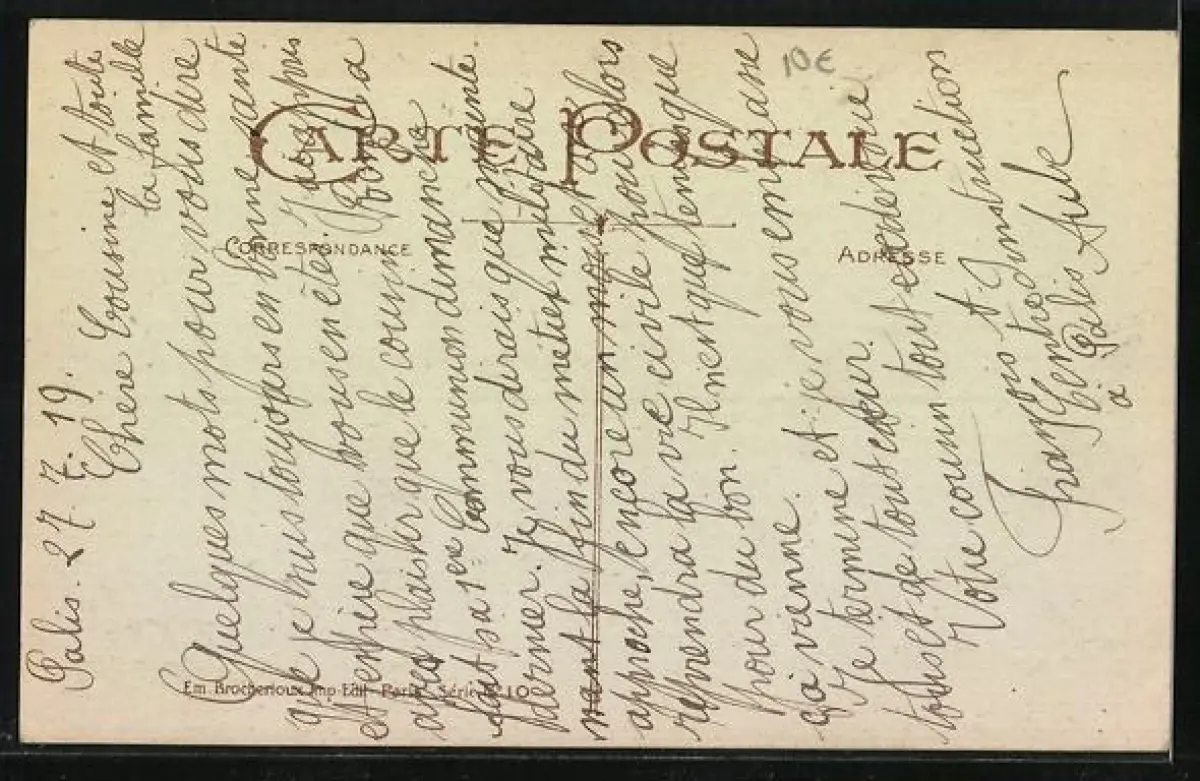 10€
CARTE POSTALE
CORRESPONDANCE
ADRESSE
Em. Brocherioux Imp-Edit - Paris - Série N° 10
Palis. 27. 7. 19.
Chère Cousine et toute
la famille
Quelques mots pour vous dire
que je suis toujours en bonne santé
et espère que vous en êtes. J'ai appris
avec plaisir que le cousin
fait sa 1ère Communion dimanche
dernier. Je vous dirais que maintenant
la fin du métier militaire
approche, encore un mois et alors
reprendra la vie civile pour
pour du bon. Il n'est que temps que
ça vienne.
Je termine et je vous embrasse
tous et de tout cœur.
Votre cousin tout
Instruction
Palis Aube
à